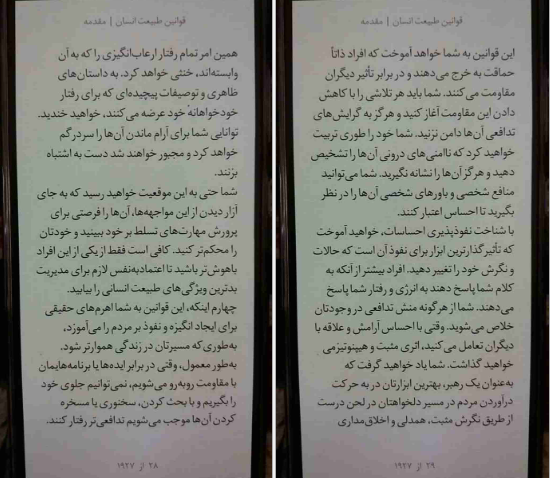 قوانین طبیعت انسان | مقدمه
همین امر تمام رفتار ارعاب‌انگیزی را که به آن
وابسته‌اند، خنثی خواهد کرد. به داستان‌های
ظاهری و توصیفات پیچیده‌ای که برای رفتار
خودخواهانهٔ خود عرضه می‌کنند، خواهید خندید.
توانایی شما برای آرام ماندن آن‌ها را سردرگم
خواهد کرد و مجبور خواهند شد دست به اشتباه
بزنند.
شما حتی به این موقعیت خواهید رسید که به جای
آزار دیدن از این مواجهه‌ها، آن‌ها را فرصتی برای
پرورش مهارت‌های تسلط بر خود ببینید و خودتان
را محکم‌تر کنید. کافی است فقط از یکی از این افراد
باهوش‌تر باشید تا اعتمادبه‌نفس لازم برای مدیریت
بدترین ویژگی‌های طبیعت انسانی را بیابید.
چهارم اینکه، این قوانین به شما اهرم‌های حقیقی
برای ایجاد انگیزه و نفوذ بر مردم را می‌آموزد،
به‌طوری‌که مسیرتان در زندگی هموارتر شود.
به‌طور معمول، وقتی در برابر ایده‌ها یا برنامه‌هایمان
با مقاومت روبه‌رو می‌شویم، نمی‌توانیم جلوی خود
را بگیریم و با بحث کردن، سخنوری یا مسخره
کردن آن‌ها موجب می‌شویم تدافعی‌تر رفتار کنند.
۲۸ از ۱۹۲۷
قوانین طبیعت انسان | مقدمه
این قوانین به شما خواهد آموخت که افراد ذاتاً
حماقت به خرج می‌دهند و در برابر تأثیر دیگران
مقاومت می‌کنند. شما باید هر تلاشی را با کاهش
دادن این مقاومت آغاز کنید و هرگز به گرایش‌های
تدافعی آن‌ها دامن نزنید. شما خود را طوری تربیت
خواهید کرد که ناامنی‌های درونی آن‌ها را تشخیص
دهید و هرگز آن‌ها را نشانه نگیرید. شما می‌توانید
منافع شخصی و باورهای شخصی آن‌ها را در نظر
بگیرید تا احساس اعتبار کنند.
با شناخت نفوذپذیری احساسات، خواهید آموخت
که تأثیرگذارترین ابزار برای نفوذ آن است که حالات
و نگرش خود را تغییر دهید. افراد بیشتر از آنکه به
کلام شما پاسخ دهند به انرژی و رفتار شما پاسخ
می‌دهند. شما از هرگونه منش تدافعی در وجودتان
خلاص می‌شوید. وقتی با احساس آرامش و علاقه با
دیگران تعامل می‌کنید، اثری مثبت و هیپنوتیزمی
خواهید گذاشت. شما یاد خواهید گرفت که
به‌عنوان یک رهبر، بهترین ابزارتان در به حرکت
درآوردن مردم در مسیر دلخواهتان در لحن درست
از طریق نگرش مثبت، همدلی و اخلاق‌مداری
۲۹ از ۱۹۲۷